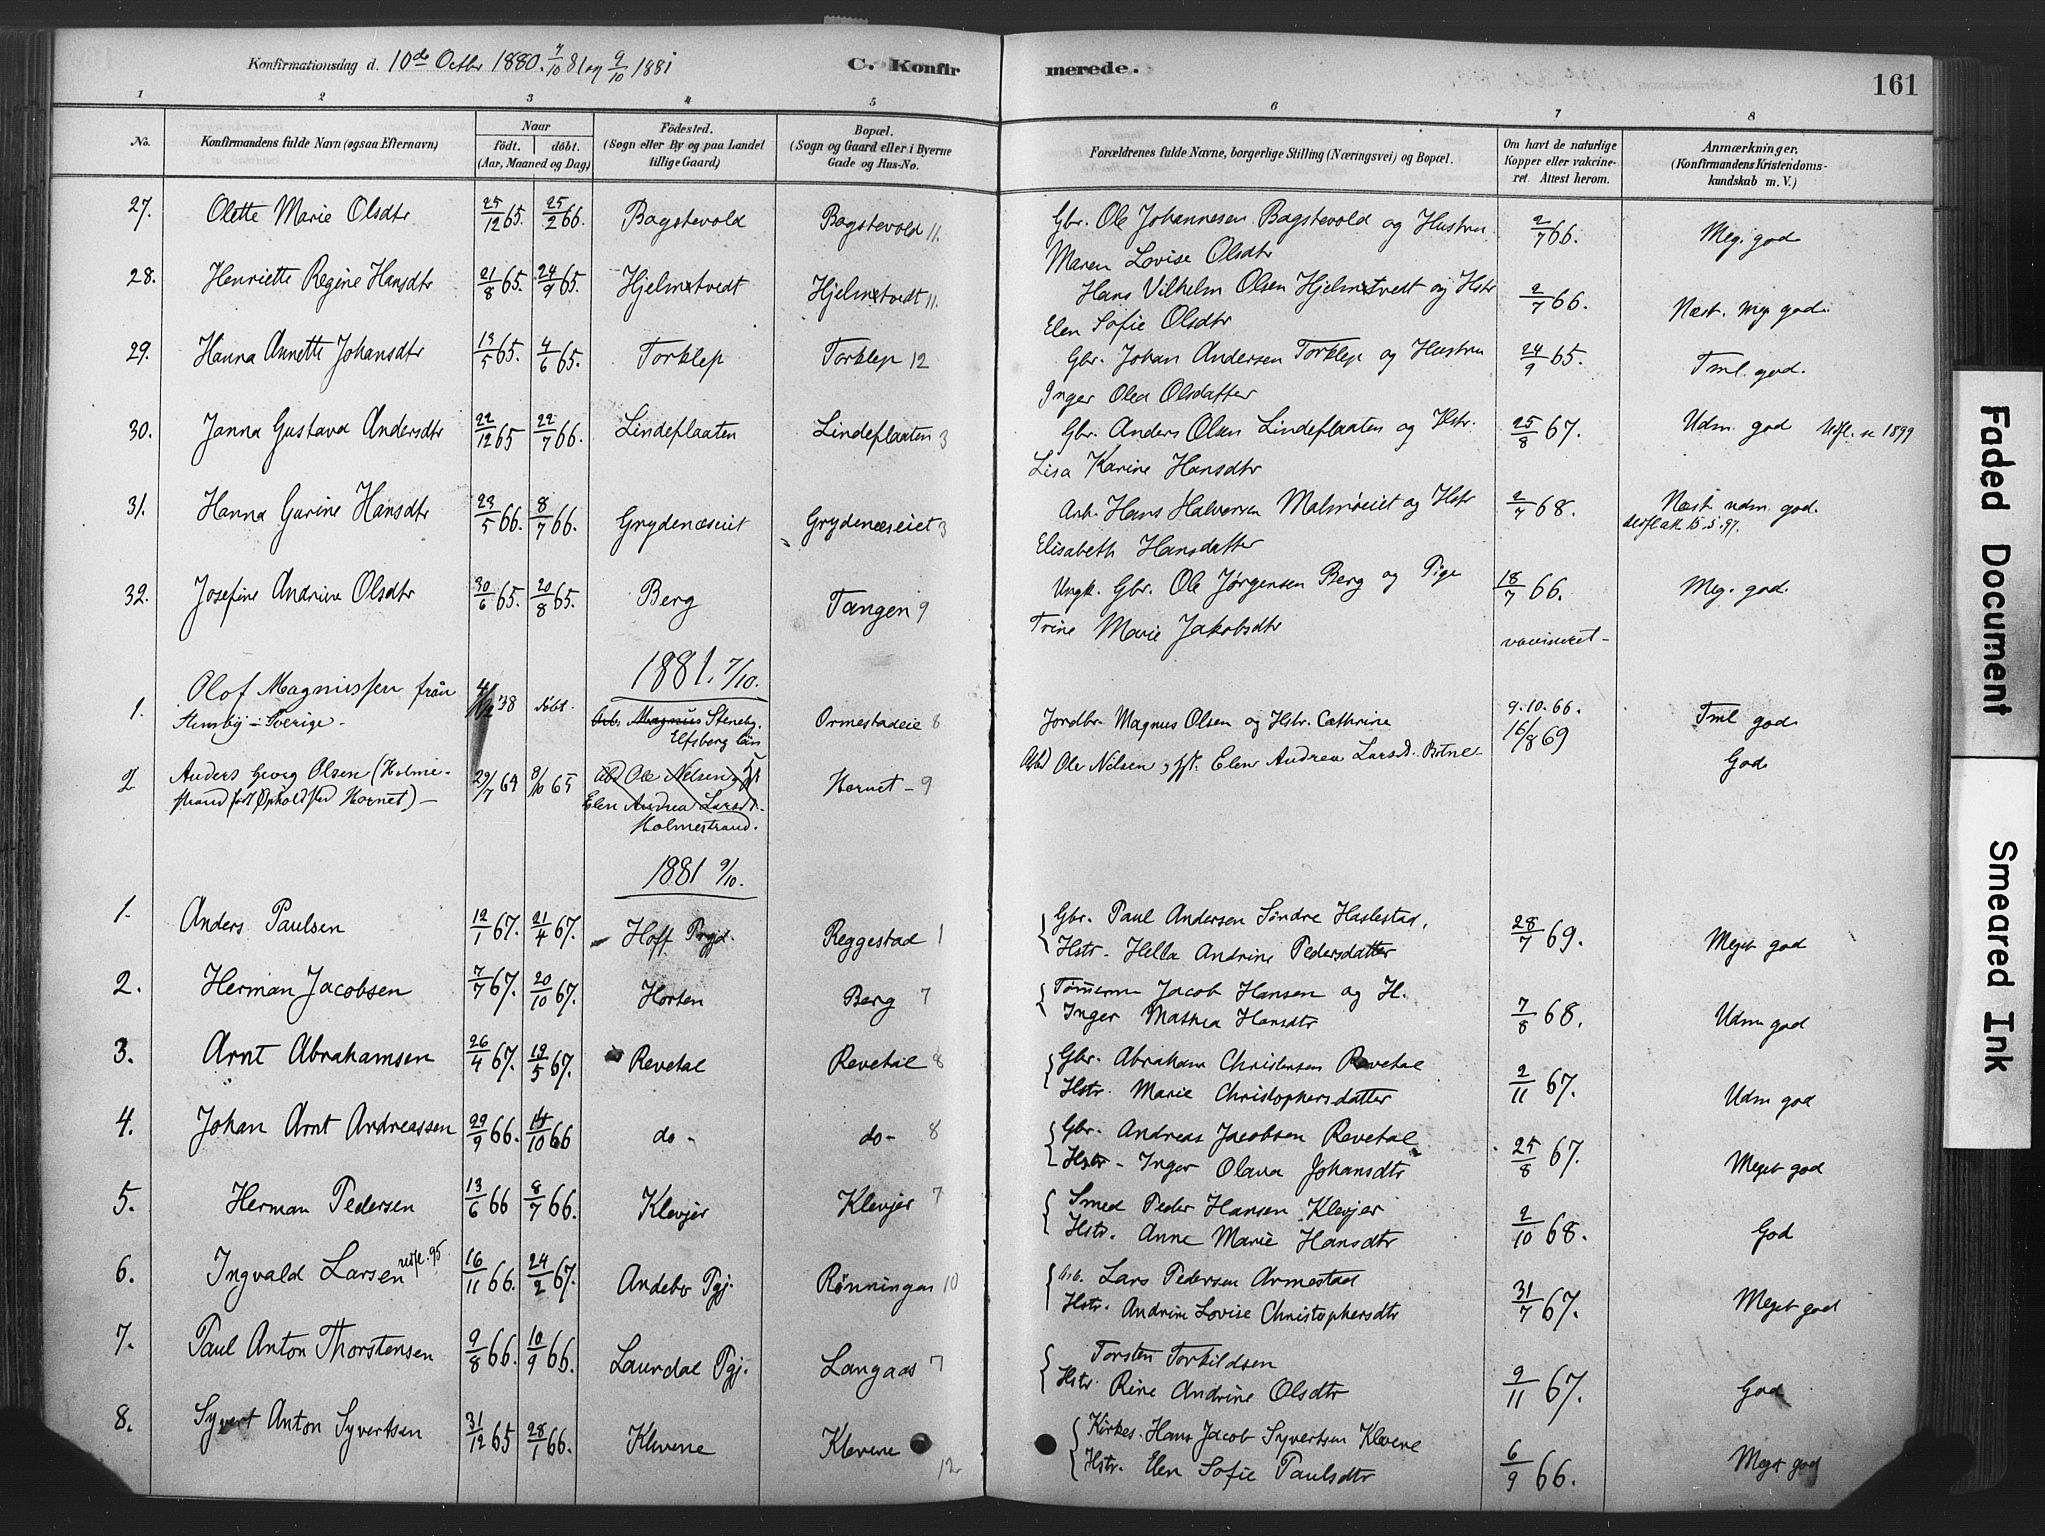 Konfirmationsdag d. 10de Octbr 1880. 7/10 81 og 9/10 1881
C. Konfir merede.
161
1 2 3 4 5 6 7 8
No.
Konfirmandens fulde Navn (ogsaa Efternavn)
Naar
födt. döbt.
(Aar, Maaned og Dag)
Födested.
(Sogn eller By og paa Landet
tillige Gaard)
Bopæl.
(Sogn og Gaard eller i Byerne
Gade og Hus-No.
Forældrenes fulde Navne, borgerlige Stilling (Næringsvei) og Bopæl.
Om havt de naturlige
Kopper eller vakcine-
ret. Attest herom.
Anmærkninger,
(Konfirmandens Kristendoms-
kundskab m. V.)
27. Olette Marie Olsdtr 25/12 65. 25/2 66. Bagstevold Bagstevold 11. Gbr. Ole Johannesen Bagstevold og Hustru 2/7 66. Meg. god
Maren Lovise Olsdtr
28. Henriette Regine Hansdtr 21/8 65. 24/9 65. Hjelmtvedt Hjelmtvedt 11. Hans Vilhelm Olsen Hjelmtvedt og Hstr 2/7 66. Næst. meg god.
Elen Sofie Olsdtr
29. Hanna Annette Johansdtr 13/5 65. 4/6 65. Torklep Torklep 12 Gbr. Johan Andersen Torklep og Hustru 24/9 65. Tml. god.
Inger Olea Olsdatter
30. Janna Gustava Andersdtr 22/12 65 22/7 66. Lindeflaaten Lindeflaaten 3 Gbr. Anders Olsen Lindeflaaten og Hstr. 25/8 67. Udm. god Udfl. 1899
Lisa Karine Hansdtr
31. Hanna Gurine Hansdtr 23/5 66. 8/7 66. Grydenæseiet Grydenæseiet 3 Arb. Hans Halversen Malmöeiet og Hstr 2/7 68. Næst. udm. god.
Elisabeth Hansdatter udfl. att. 15.5.97.
32. Josefine Andrine Olsdtr 30/6 65. 20/8 65. Berg Tangen 9 Ungk. Gbr. Ole Jørgensen Berg og Pige 18/7 66. Meg. god.
Trine Marie Jakobsdtr
1881. 7/10.
vaccineret
1. Olof Magnussen från 4/12 38 døbt. Arb. Magnus Steneby. Ormestadeie 8 Jordbr. Magnus Olsen og Hstr. Cathrine 9.10.66. Tml god
Stensby - Sverige - Elfsberg län
2 Anders Georg Olsen (Holme- 29/7 64 8/10 65 Arb Ole Nelsen og Hornet - 9 Arbd Ole Nilsen, Elen Andrea Larsd. Botne 16/8 69 God
strand født Ophold sted Hornet) - Elen Andrea Larsd.
Holmestrand.
1881 9/10.
1. Anders Paulsen 12/1 67. 21/4 67. Hoff Prgd. Reggestad 1 Gbr. Paul Andersen Söndre Haslestad, 28/7 69. Meget god
Hstr. Hella Andrine Pedersdatter
2. Herman Jacobsen 7/7 67. 20/10 67. Horten Berg 7 Tømerm Jacob Hansen og H. 7/8 68. Udm god
Inger Mathea Hansdtr
3. Arnt Abrahamsen 26/4 67. 19/5 67. Revetal Revetal 8 Gbr. Abraham Christensen Revetal 2/11 67. Udm god
Hstr. Marie Christophersdatter
4. Johan Arnt Andreassen 29/9 66. 14/10 66 do - do - 8 Gbr. Andreas Jacobsen Revetal 25/8 67. Meget god
Hstr - Inger Olava Johansdtr
5. Herman Pedersen 13/6 66 8/7 66. Klevjer Klevjer 7 Smed Peder Hansen Klevjer 2/10 68. God
Hstr. Anne Marie Hansdtr
6. Ingvald Larsen udfl. 95. 16/11 66. 24/2 67. Andebo Pgj. Rönningen 10 Arb. Lars Pedersen Armestad 31/7 67. Meget god
Hstr. Andrine Lovise Christophersdtr
7. Paul Anton Thorstensen 9/8 66. 10/9 66. Laurdal Pgj. Langaas 7 Torsten Torkildsen 9/11 67. God
Hstr. Rine Andrine Olsdtr
8. Syvert Anton Syvertsen 31/12 65 28/1 66. Klevene Klevene 12 Kirkes. Hans Jacob Syvertsen Klevene 6/9 66. Meget god
Hstr. Elen Sofie Paulsdtr
Faded Document
Smeared Ink